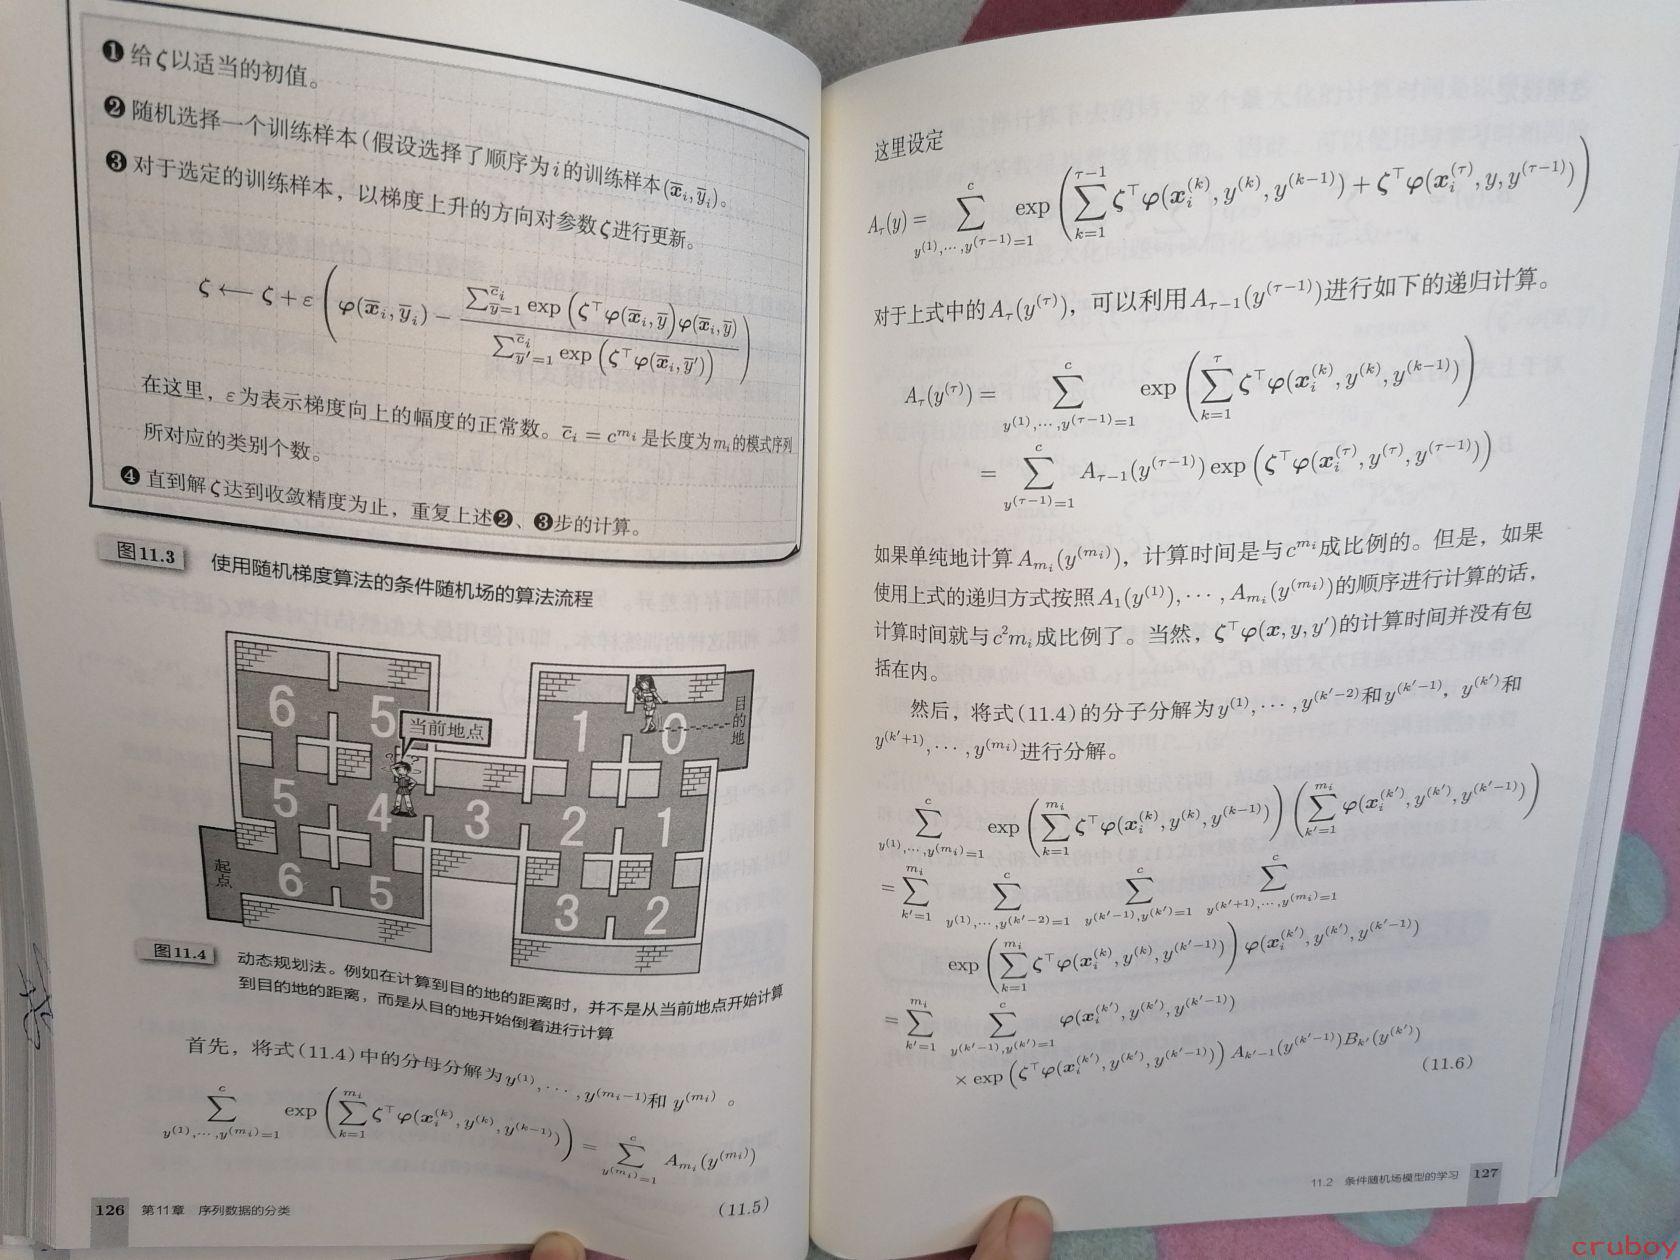 ❶ 给ζ以适当的初值。
❷ 随机选择一个训练样本(假设选择了顺序为i的训练样本(x̄ᵢ,ȳᵢ)。
❸ 对于选定的训练样本，以梯度上升的方向对参数ζ进行更新。
ζ ⟵ ζ + ε ( φ(x̄ᵢ,ȳᵢ) − \frac{∑_{ȳ=1}^{c̄ᵢ} exp(ζ^⊤φ(x̄ᵢ,ȳ)φ(x̄ᵢ,ȳ)}{∑_{ȳ′=1}^{c̄ᵢ} exp(ζ^⊤φ(x̄ᵢ,ȳ′))} )
在这里，ε为表示梯度向上的幅度的正常数。c̄ᵢ = c^{mᵢ} 是长度为mᵢ的模式序列
所对应的类别个数。
❹ 直到解ζ达到收敛精度为止，重复上述❷、❸步的计算。
图11.3 使用随机梯度算法的条件随机场的算法流程
6 5 当前地点 1 0 目的地
5 4 3 2 1
起点 6 5 3 2
图11.4 动态规划法。例如在计算到目的地的距离时，并不是从当前地点开始计算
到目的地的距离，而是从目的地开始倒着进行计算
首先，将式(11.4)中的分母分解为y^{(1)},⋯,y^{(mᵢ−1)}和 y^{(mᵢ)} 。
∑_{y^{(1)},⋯,y^{(mᵢ)}=1}^{c} exp( ∑_{k=1}^{mᵢ} ζ^⊤φ(xᵢ^{(k)},y^{(k)},y^{(k−1)}) ) = ∑_{y^{(mᵢ)}=1}^{c} A_{mᵢ}(y^{(mᵢ)})
(11.5)
126 第11章 序列数据的分类
这里设定
A_τ(y) = ∑_{y^{(1)},⋯,y^{(τ−1)}=1}^{c} exp( ∑_{k=1}^{τ−1} ζ^⊤φ(xᵢ^{(k)},y^{(k)},y^{(k−1)}) + ζ^⊤φ(xᵢ^{(τ)},y,y^{(τ−1)}) )
对于上式中的A_τ(y^{(τ)})，可以利用A_{τ−1}(y^{(τ−1)})进行如下的递归计算。
A_τ(y^{(τ)}) = ∑_{y^{(1)},⋯,y^{(τ−1)}=1}^{c} exp( ∑_{k=1}^{τ} ζ^⊤φ(xᵢ^{(k)},y^{(k)},y^{(k−1)}) )
= ∑_{y^{(τ−1)}=1}^{c} A_{τ−1}(y^{(τ−1)}) exp( ζ^⊤φ(xᵢ^{(τ)},y^{(τ)},y^{(τ−1)}) )
如果单纯地计算 A_{mᵢ}(y^{(mᵢ)})，计算时间是与c^{mᵢ}成比例的。但是，如果
使用上式的递归方式按照A₁(y^{(1)}),⋯,A_{mᵢ}(y^{(mᵢ)})的顺序进行计算的话，
计算时间就与c²mᵢ成比例了。当然，ζ^⊤φ(x,y,y′)的计算时间并没有包
括在内。
然后，将式(11.4)的分子分解为y^{(1)},⋯,y^{(k′−2)}和y^{(k′−1)}，y^{(k′)}和
y^{(k′+1)},⋯,y^{(mᵢ)}进行分解。
∑_{y^{(1)},⋯,y^{(mᵢ)}=1}^{c} exp( ∑_{k=1}^{mᵢ} ζ^⊤φ(xᵢ^{(k)},y^{(k)},y^{(k−1)}) ) ( ∑_{k′=1}^{mᵢ} φ(xᵢ^{(k′)},y^{(k′)},y^{(k′−1)}) )
= ∑_{k′=1}^{mᵢ} ∑_{y^{(1)},⋯,y^{(k′−2)}=1}^{c} ∑_{y^{(k′−1)},y^{(k′)}=1}^{c} ∑_{y^{(k′+1)},⋯,y^{(mᵢ)}=1}^{c}
exp( ∑_{k=1}^{mᵢ} ζ^⊤φ(xᵢ^{(k)},y^{(k)},y^{(k′−1)}) ) φ(xᵢ^{(k′)},y^{(k′)},y^{(k′−1)})
= ∑_{k′=1}^{mᵢ} ∑_{y^{(k′−1)},y^{(k′)}=1}^{c} φ(xᵢ^{(k′)},y^{(k′)},y^{(k′−1)})
× exp( ζ^⊤φ(xᵢ^{(k′)},y^{(k′)},y^{(k′−1)}) ) A_{k′−1}(y^{(k′−1)})B_{k′}(y^{(k′)})
(11.6)
11.2 条件随机场模型的学习 127
cruboy